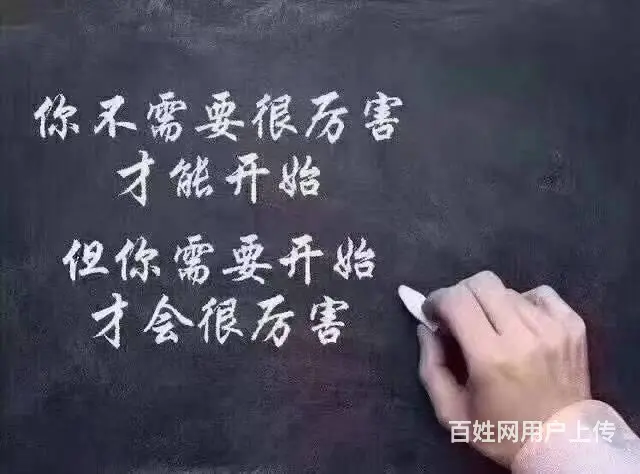 你不需要很厉害
才能开始
但你需要开始
才会很厉害
百姓网用户上传